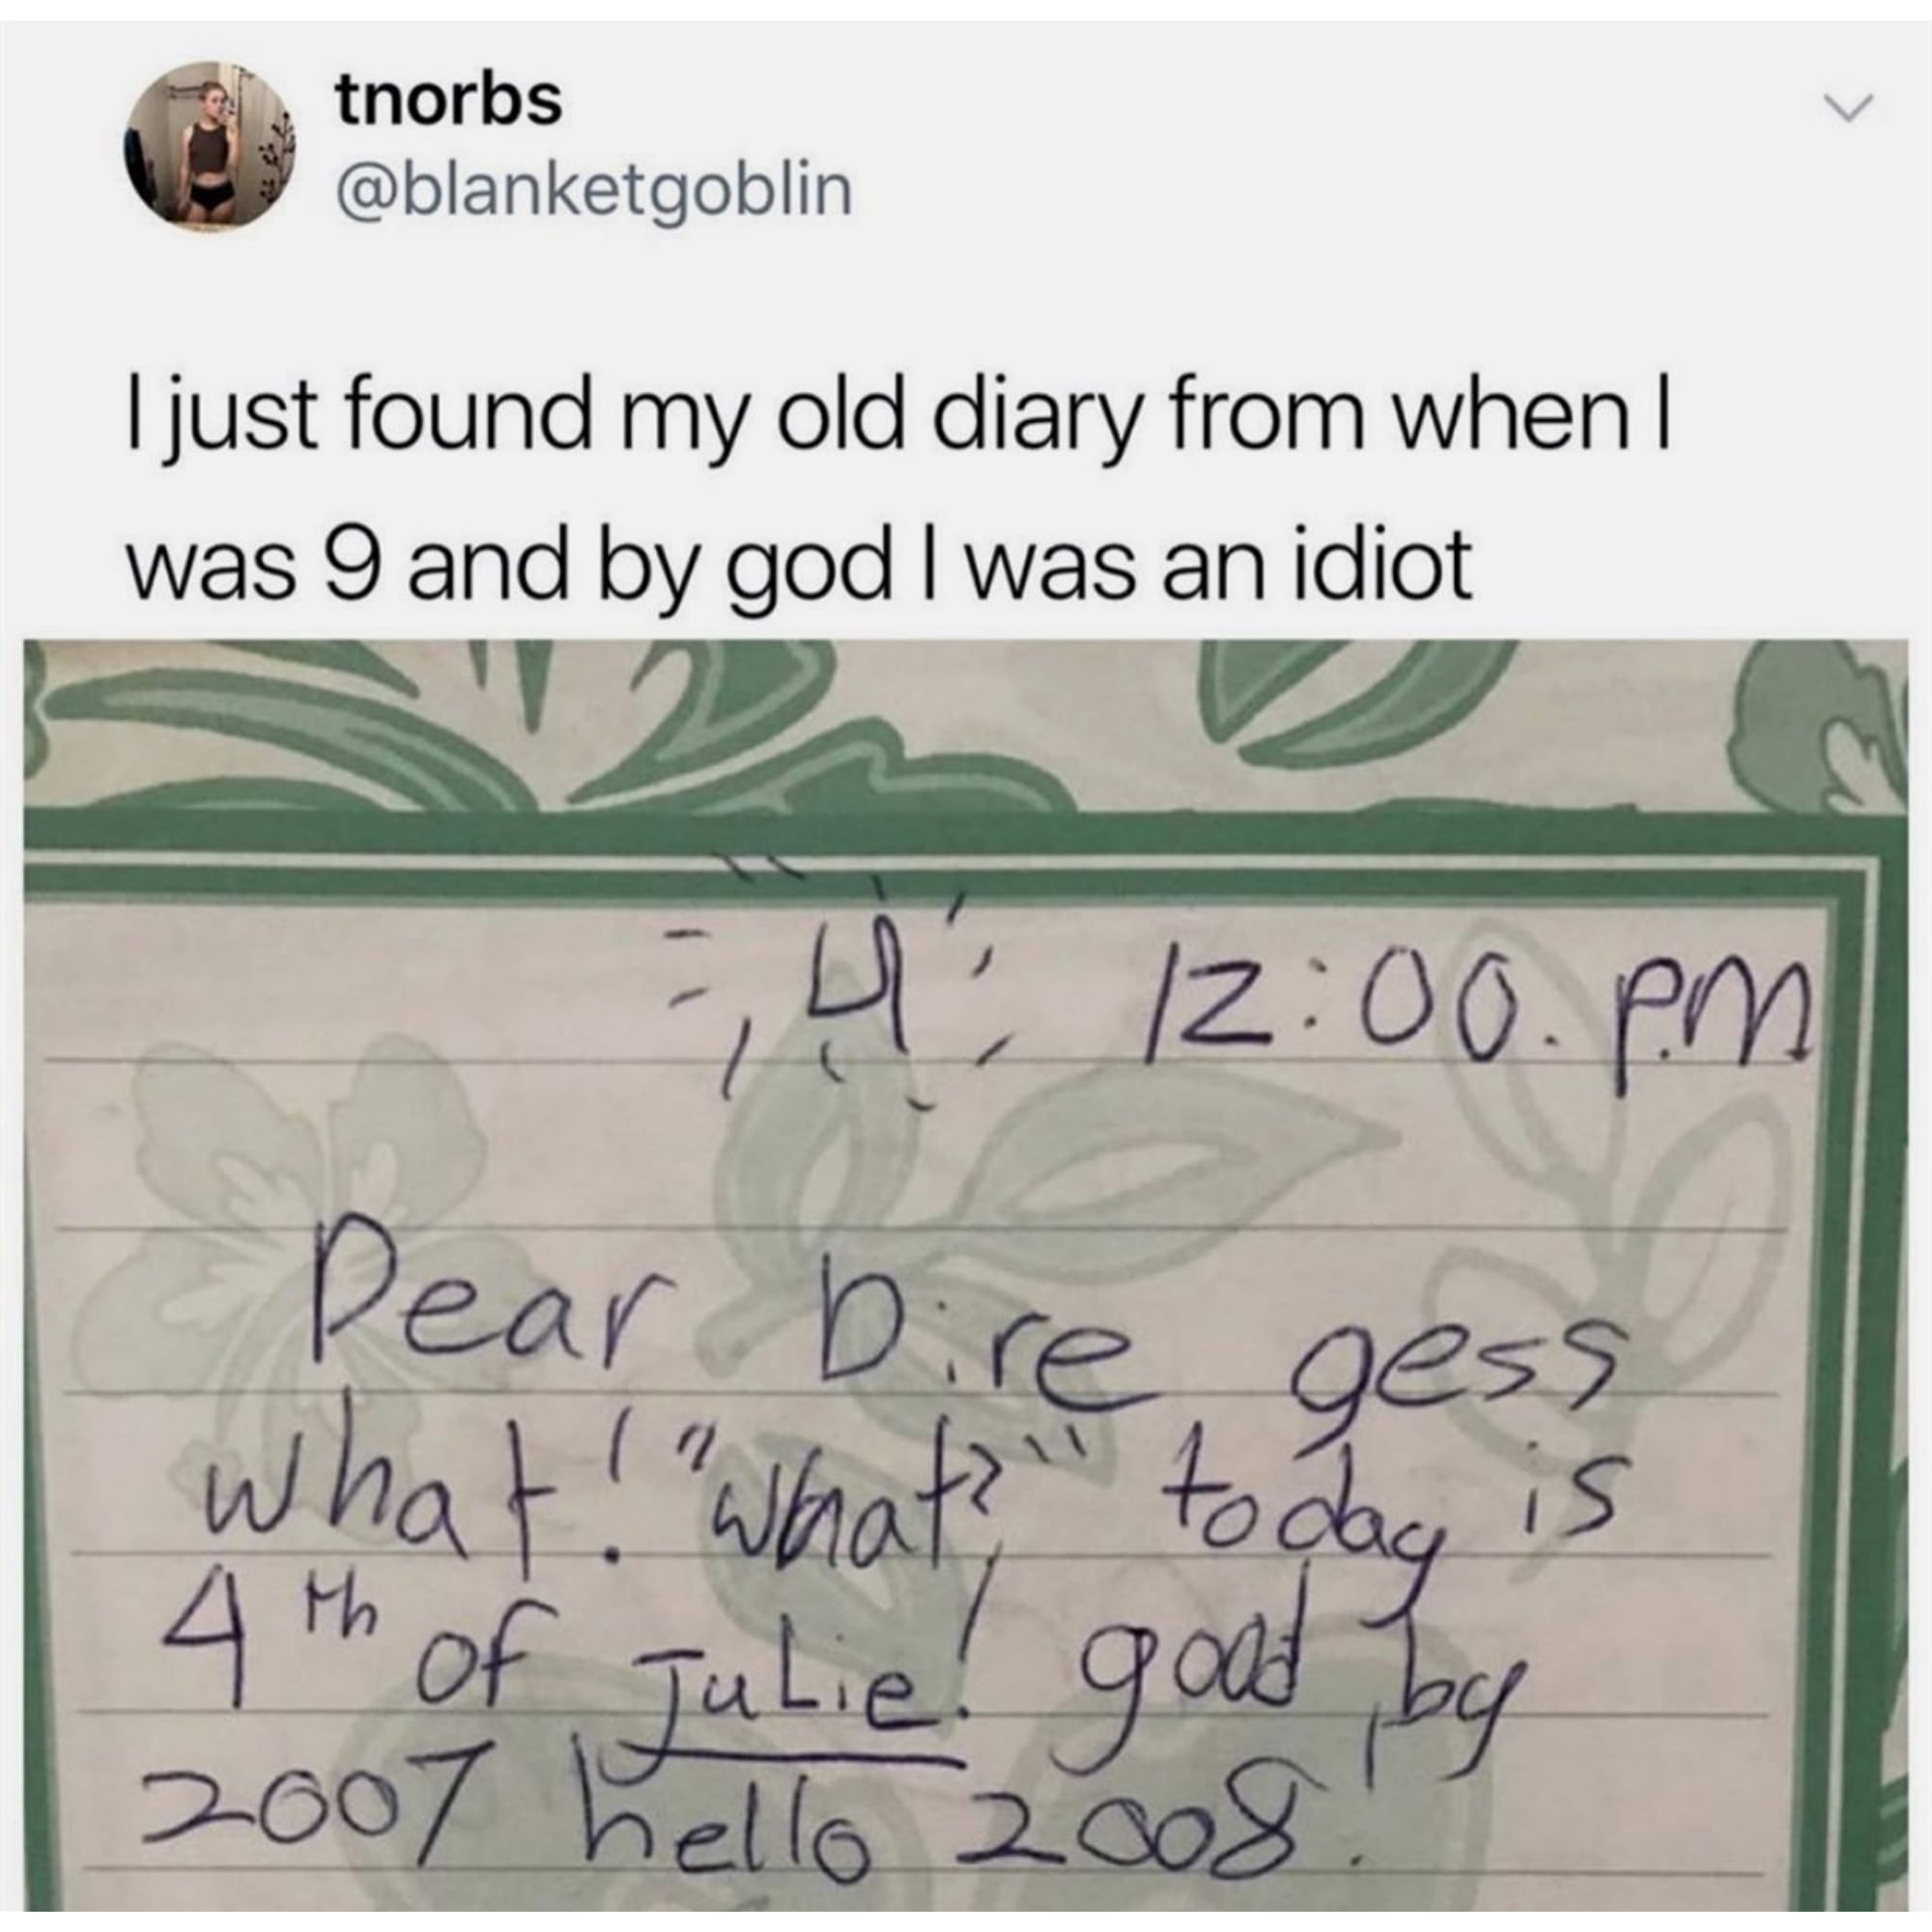 tnorbs
@blanketgoblin
I just found my old diary from when I
was 9 and by god I was an idiot
4 12:00. P.M
Dear Dire gess
what! "what?" today is
4th of JuLie! good by
2007 hello 2008!